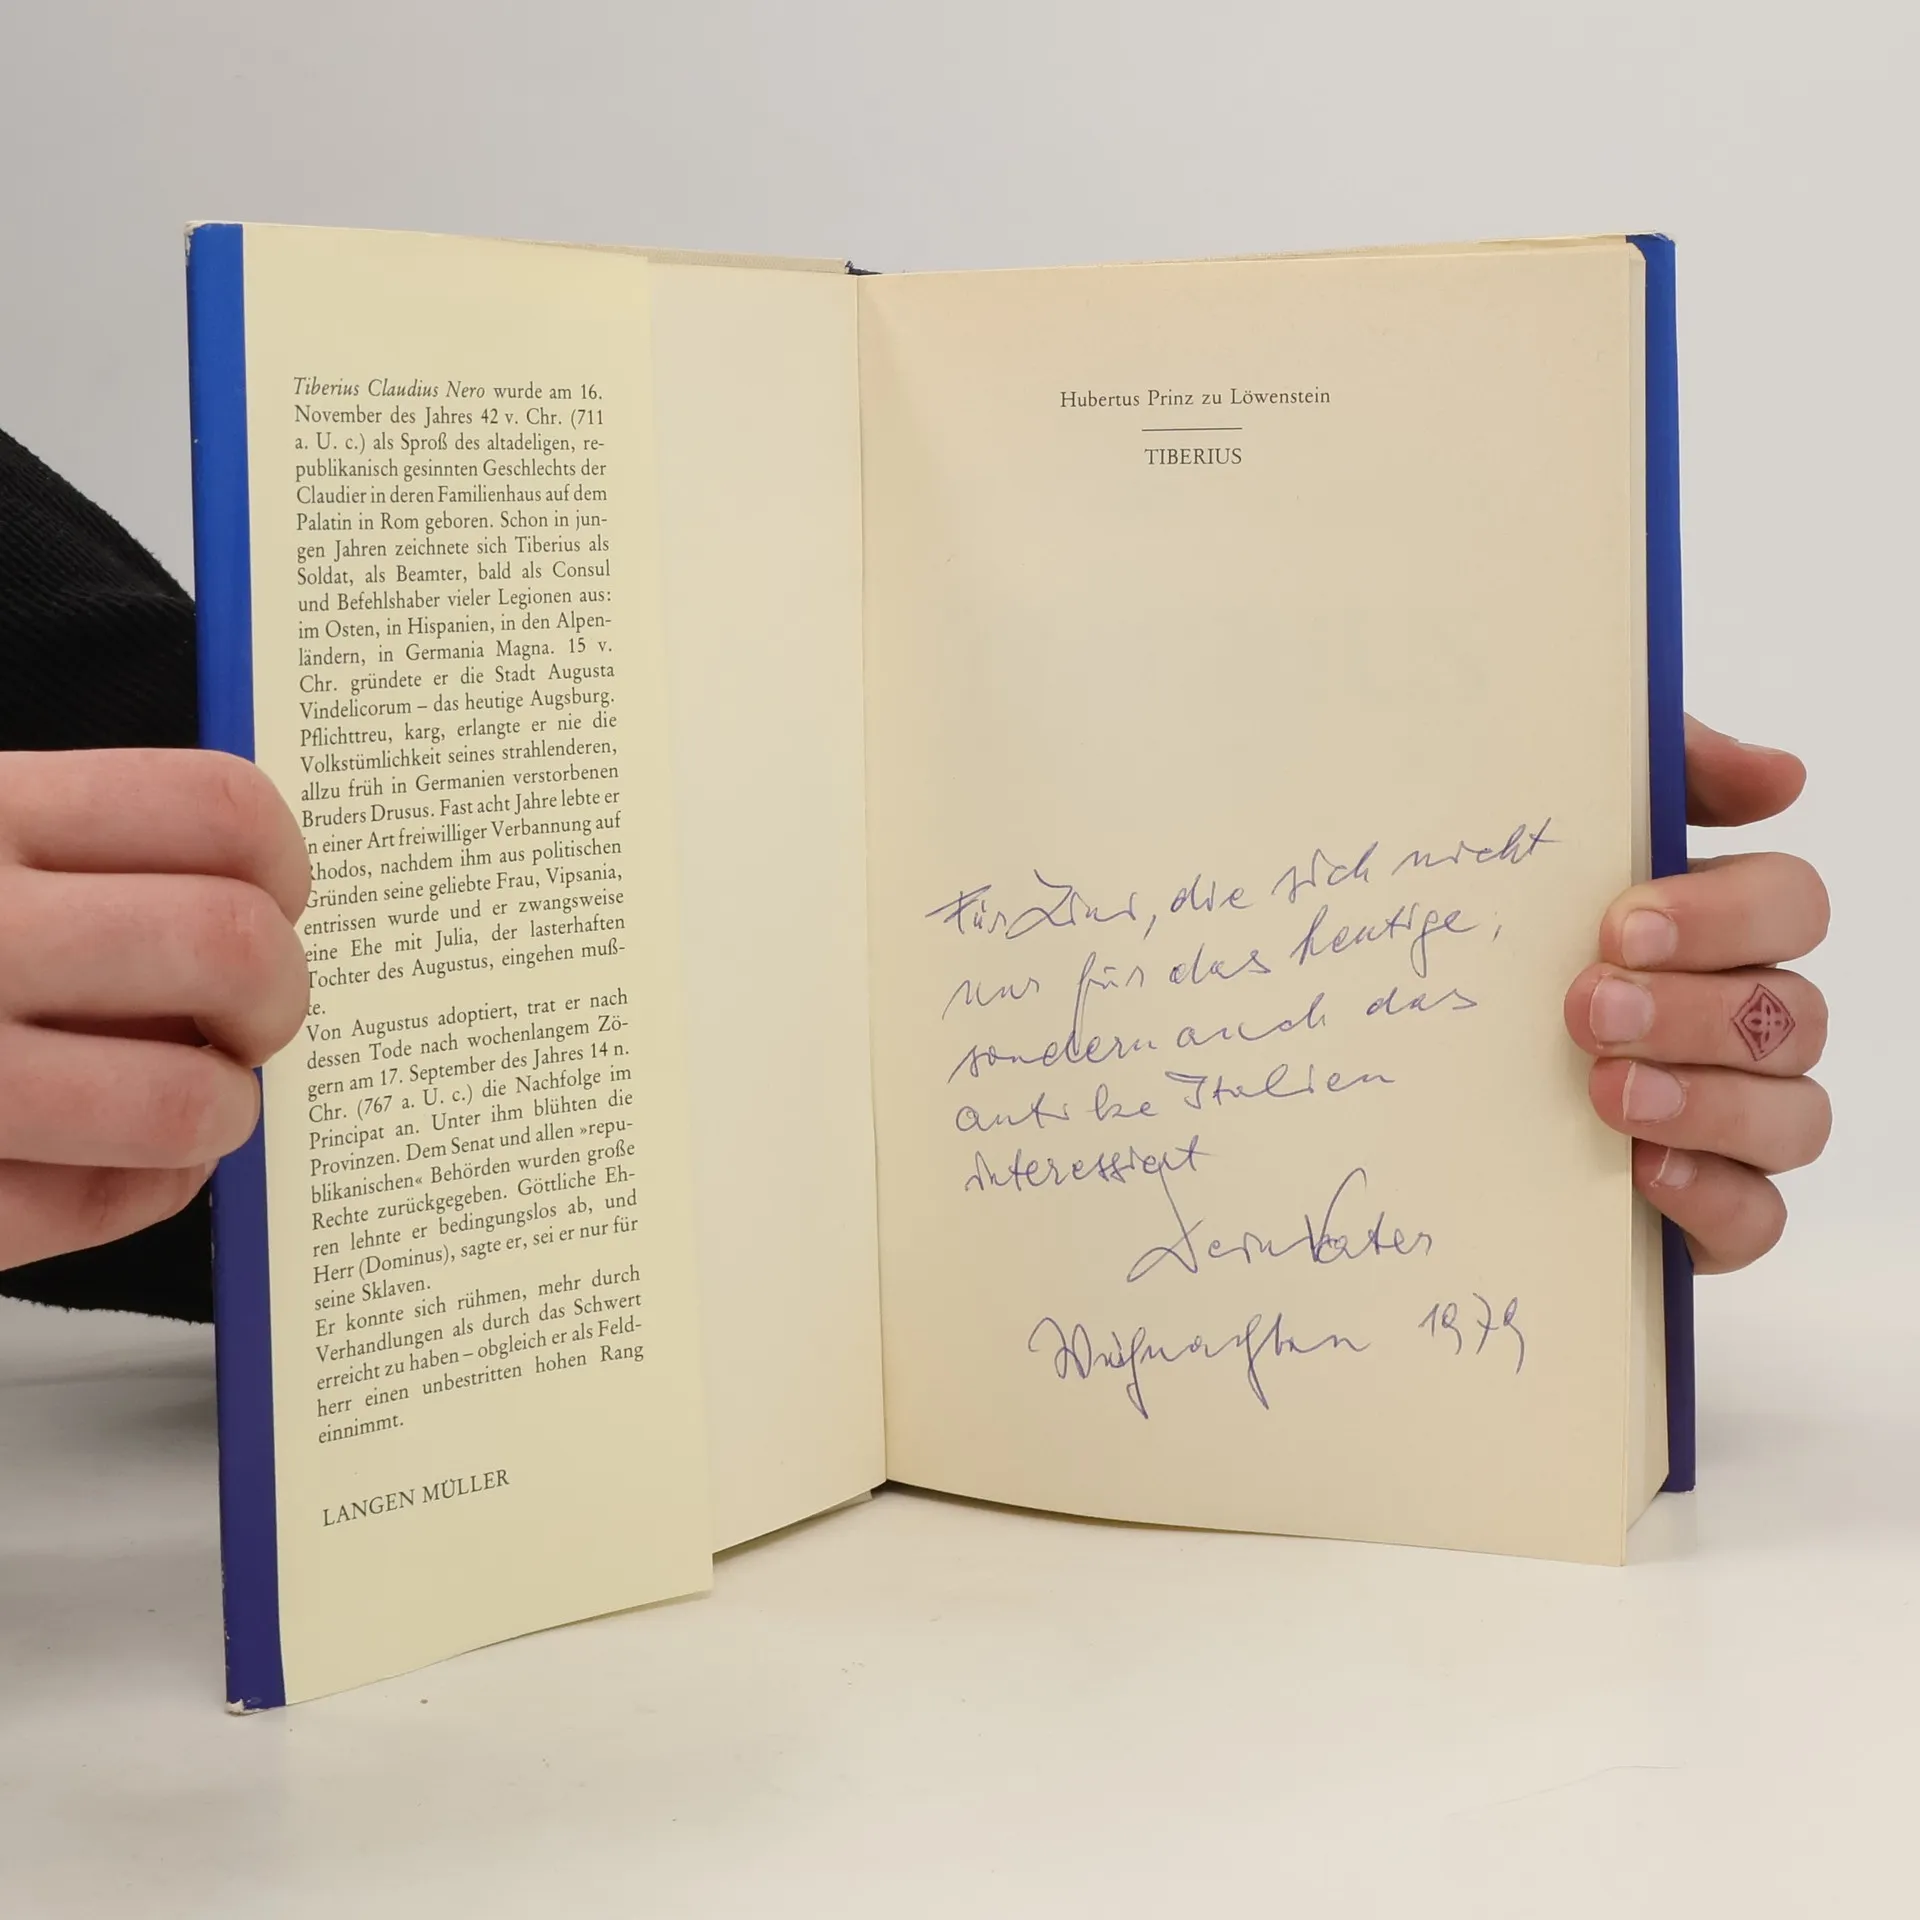 Tiberius Claudius Nero wurde am 16.
November des Jahres 42 v. Chr. (711
a. U. c.) als Sproß des altadeligen, re-
publikanisch gesinnten Geschlechts der
Claudier in deren Familienhaus auf dem
Palatin in Rom geboren. Schon in jun-
gen Jahren zeichnete sich Tiberius als
Soldat, als Beamter, bald als Consul
und Befehlshaber vieler Legionen aus:
im Osten, in Hispanien, in den Alpen-
ländern, in Germania Magna. 15 v.
Chr. gründete er die Stadt Augusta
Vindelicorum – das heutige Augsburg.
Pflichttreu, karg, erlangte er nie die
Volkstümlichkeit seines strahlenderen,
allzu früh in Germanien verstorbenen
Bruders Drusus. Fast acht Jahre lebte er
in einer Art freiwilliger Verbannung auf
Rhodos, nachdem ihm aus politischen
Gründen seine geliebte Frau, Vipsania,
entrissen wurde und er zwangsweise
eine Ehe mit Julia, der lasterhaften
Tochter des Augustus, eingehen muß-
te.
Von Augustus adoptiert, trat er nach
dessen Tode nach wochenlangem Zö-
gern am 17. September des Jahres 14 n.
Chr. (767 a. U. c.) die Nachfolge im
Principat an. Unter ihm blühten die
Provinzen. Dem Senat und allen »repu-
blikanischen« Behörden wurden große
Rechte zurückgegeben. Göttliche Eh-
ren lehnte er bedingungslos ab, und
Herr (Dominus), sagte er, sei er nur für
seine Sklaven.
Er konnte sich rühmen, mehr durch
Verhandlungen als durch das Schwert
erreicht zu haben – obgleich er als Feld-
herr einen unbestritten hohen Rang
einnimmt.
LANGEN MÜLLER
Hubertus Prinz zu Löwenstein
TIBERIUS
Für die sich nicht
nur für das heutige,
sondern auch das
antike Italien
interessiert
Dein Vater
Weihnachten 1979